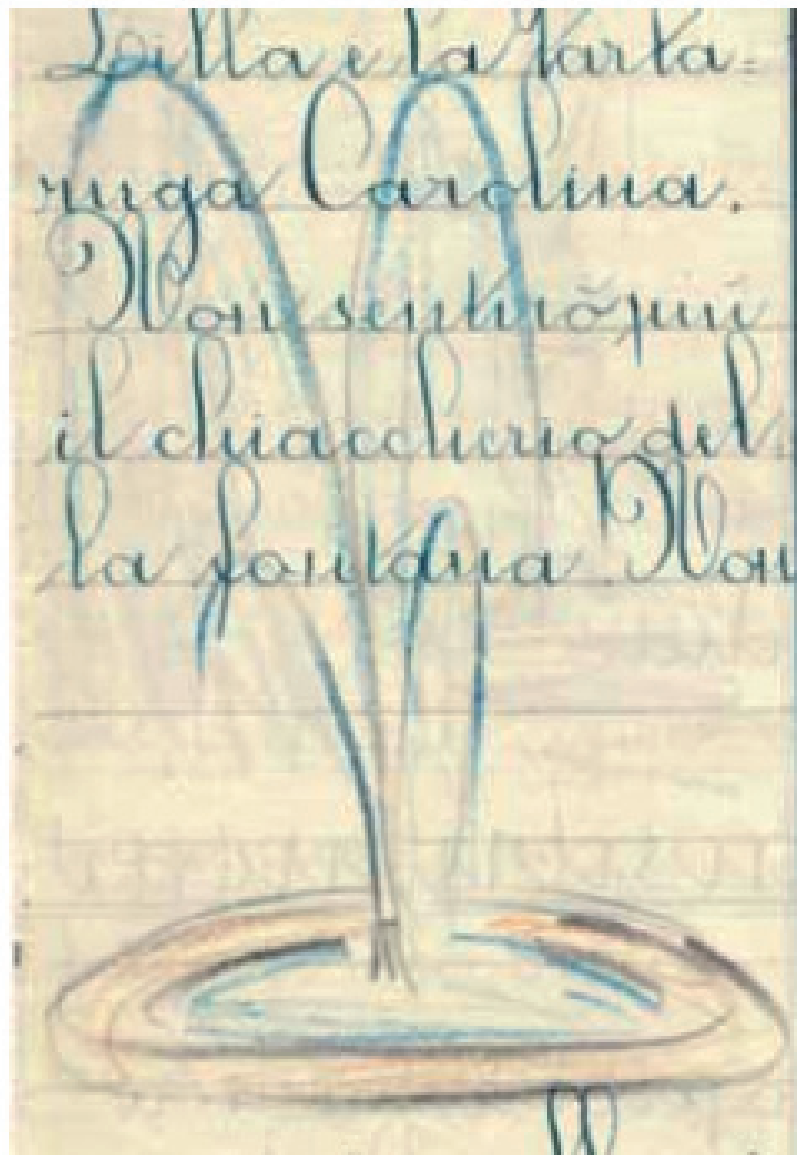 Lilla e la Tarta=
ruga Carolina.
Non sentirò più
il chiaccherio del
la fontana. Non